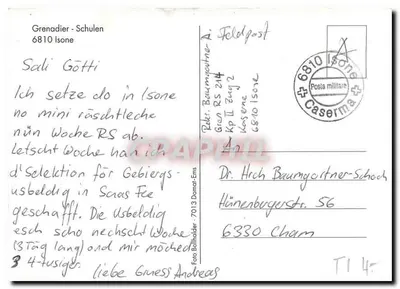 Grenadier - Schulen
6810 Isone
Sali Götti
Ich setze do in Isone
no mini röschtleche
nün Woche RS ab.
letscht Woche han ich
d'Selektion för Gebirgs-
usbeldig in Saas Fee
geschafft. Die Usbeldig
esch scho nechscht Woche
(3 Täg lang) ond mir möched
3 4-tusiger.
liebe Gruess Andreas
Foto Bellholder - 7013 Domat-Ems
Rekr. Baumgartner A.
Gren RS 214
Kp II Zug 2
Kaserne
6810 Isone
Feldpost
A
6810 Isone
Posta militare
Caserma
An
Dr. Hrch Baumgartner-Schoch
Hünenbergerstr. 56
6330 Cham
TI 4.-
CPAPHIL